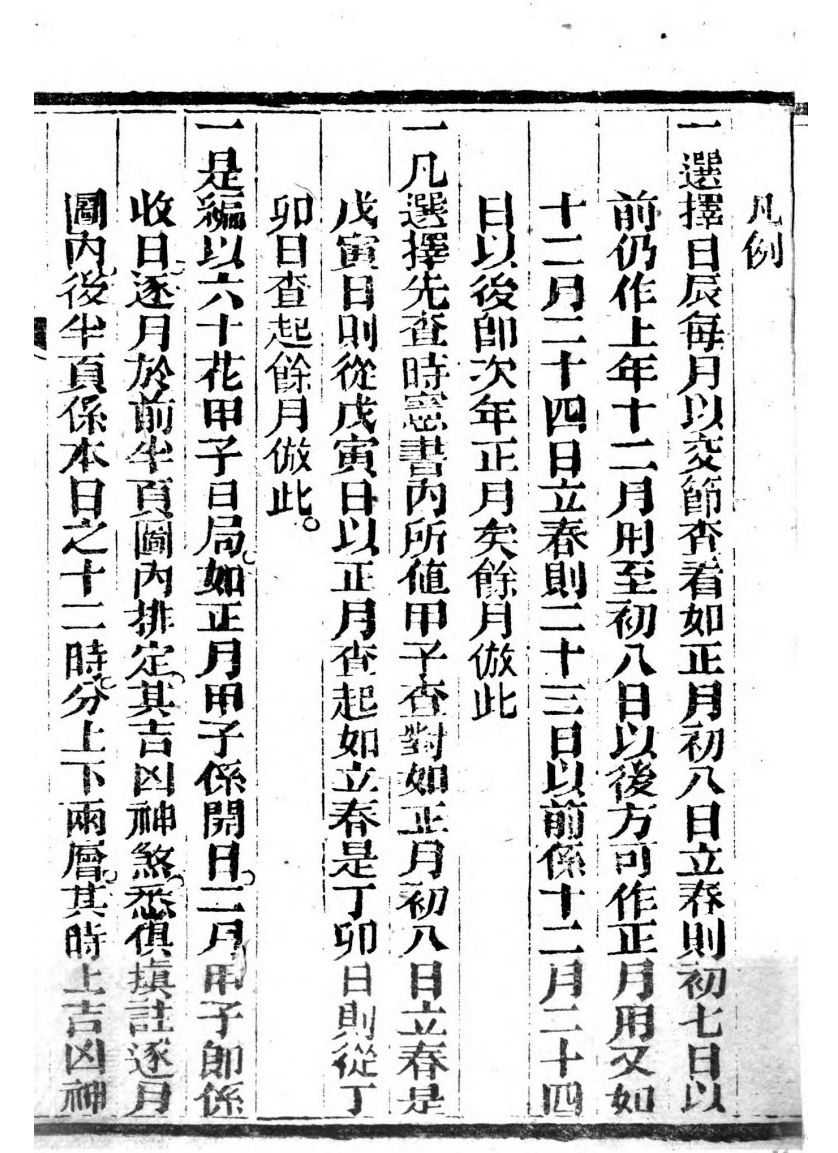 凡例
一選擇日辰每月以交節查看如正月初八日立春則初七日以
前仍作上年十二月用至初八日以後方可作正月用又如
十二月二十四日立春則二十三日以前係十二月二十四
日以後卽次年正月矣餘月倣此
一凡選擇先查時憲書內所值甲子查對如正月初八日立春是
戊寅日則從戊寅日以正月查起如立春是丁卯日則從丁
卯日查起餘月倣此。
一是編以六十花甲子日局。如正月甲子係開日。二月甲子卽係
收日。逐月於前半頁圖內排定。其吉凶神煞。悉俱塡註逐月
圖內。後半頁係本日之十二時。分上下兩層。其時上吉凶神